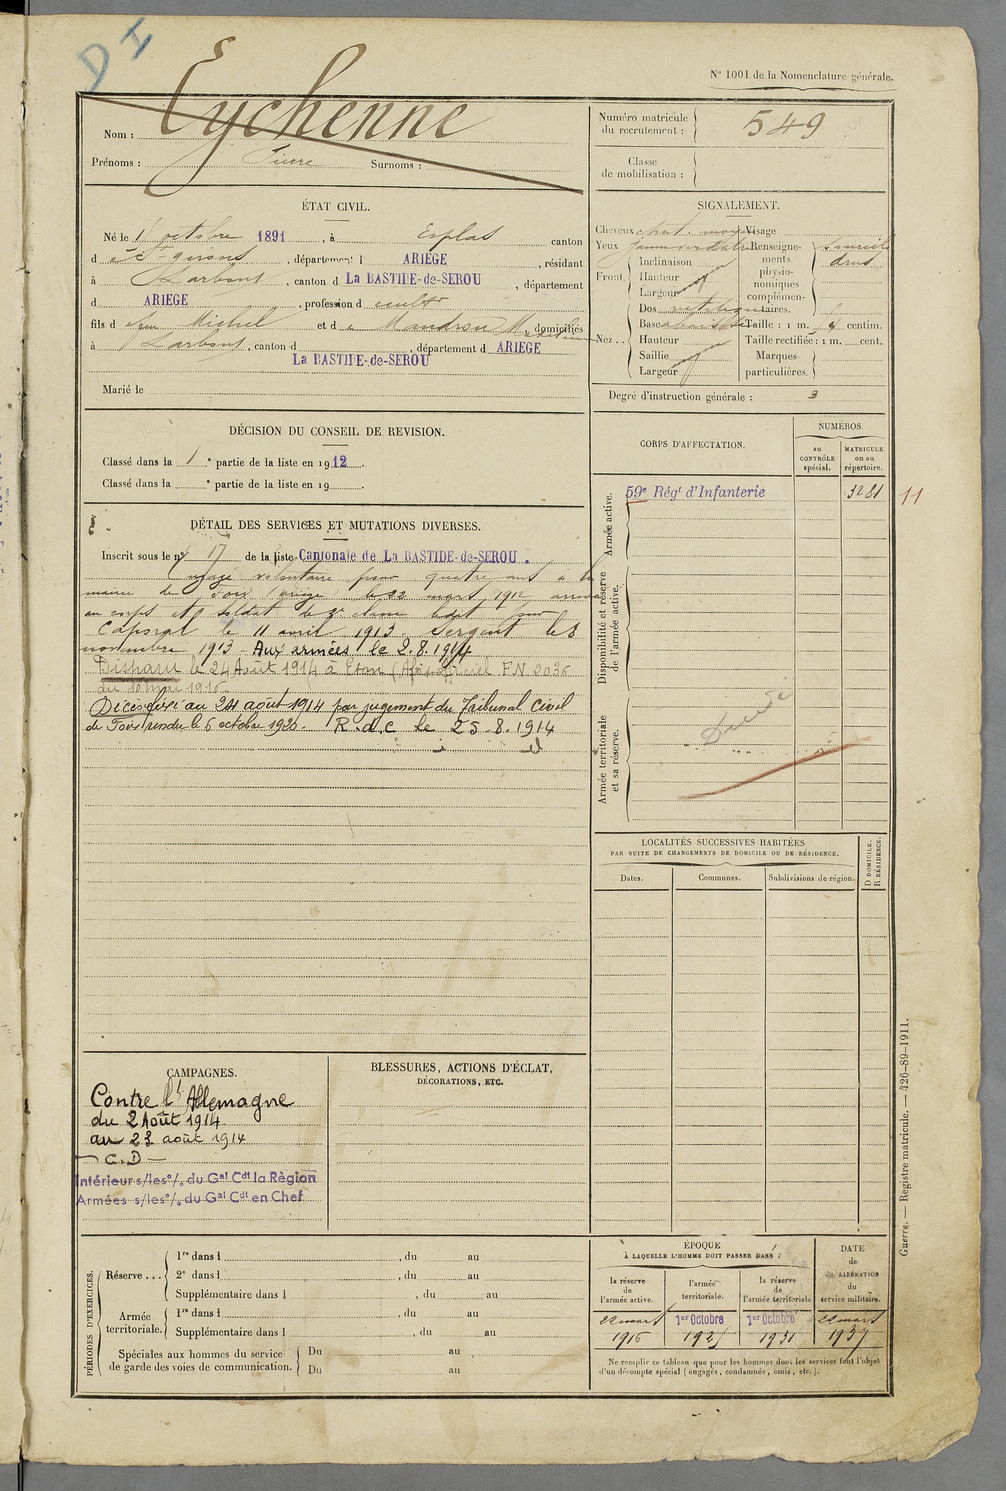 D I
N° 1001 de la Nomenclature générale.
Nom : Eychenne
Prénoms : Pierre Surnoms :
Numéro matricule du recrutement : 549
Classe de mobilisation :
ÉTAT CIVIL.
Né le 1 octobre 1891, à Esplas canton
d e St Girons, département d ARIEGE, résidant
à Larbont, canton d La BASTIDE-de-SEROU, département
d ARIEGE, profession d cultr
fils d e feu Michel et d e Mandrou M, domiciliés
à Larbont, canton d La BASTIDE-de-SEROU, département d ARIEGE
Marié le
SIGNALEMENT.
Cheveux chat. moyen Visage
Yeux jaune verdâtre Renseignements physionomiques complémentaires. Sourcils drus
Front Inclinaison
Hauteur
Largeur moyen
Nez Dos rectiligne
Base abaissée Taille : 1 m. centim.
Hauteur Taille rectifiée : 1 m. cent.
Saillie Marques
Largeur moyen particulières.
Degré d'instruction générale : 3
DÉCISION DU CONSEIL DE REVISION.
Classé dans la 1 e partie de la liste en 1912.
Classé dans la e partie de la liste en 19
CORPS D'AFFECTATION.
NUMÉROS
au CONTRÔLE spécial.
MATRICULE ou au répertoire.
Armée active.
59e Régt d'Infanterie 3281 11
Disponibilité et réserve de l'armée active.
Armée territoriale et sa réserve.
DÉTAIL DES SERVICES ET MUTATIONS DIVERSES.
Inscrit sous le n° 17 de la liste Cantonale de La BASTIDE-de-SEROU.
Engagé volontaire pour quatre ans à la
mairie de Foix Ariège le 22 mars 1912 arrivé
au corps et soldat de 2e classe ledit jour
Caporal le 11 avril 1913. Sergent le 8
novembre 1913 - Aux armées le 2.8.1914
Disparu le 24 Août 1914 à Eton (Avis officiel FN 2036
du 10 1916
Décès fixé au 24 août 1914 par jugement du Tribunal Civil
de Foix rendu le 6 octobre 1920. R.d.c le 25.8.1914
LOCALITÉS SUCCESSIVES HABITÉES
PAR SUITE DE CHANGEMENTS DE DOMICILE OU DE RÉSIDENCE.
Dates. Communes. Subdivisions de région. D DOMICILE. R RÉSIDENCE.
CAMPAGNES.
Contre l'Allemagne
du 2 Août 1914
au 23 août 1914
C.D
Intérieur s/les o/. du Gal Cdt la Région
Armées s/les o/. du Gal Cdt en Chef
BLESSURES, ACTIONS D'ÉCLAT,
DÉCORATIONS, ETC.
PÉRIODES D'EXERCICES.
Réserve ... 1re dans l , du au
2e dans l , du au
Supplémentaire dans l , du au
Armée territoriale. 1re dans l , du au
Supplémentaire dans l , du au
Spéciales aux hommes du service de garde des voies de communication. Du au
Du au
ÉPOQUE
À LAQUELLE L'HOMME DOIT PASSER DANS :
la réserve de l'armée active.
l'armée territoriale.
la réserve de l'armée territoriale
DATE de LIBÉRATION du service militaire.
22 mars 1916
1er Octobre 1925
1er Octobre 1931
22 mars 1937
Ne remplir ce tableau que pour les hommes dont les services font l'objet
d'un décompte spécial (engagés, condamnés, omis, etc.).
Guerre. — Registre matricule. — 426-89-1911.